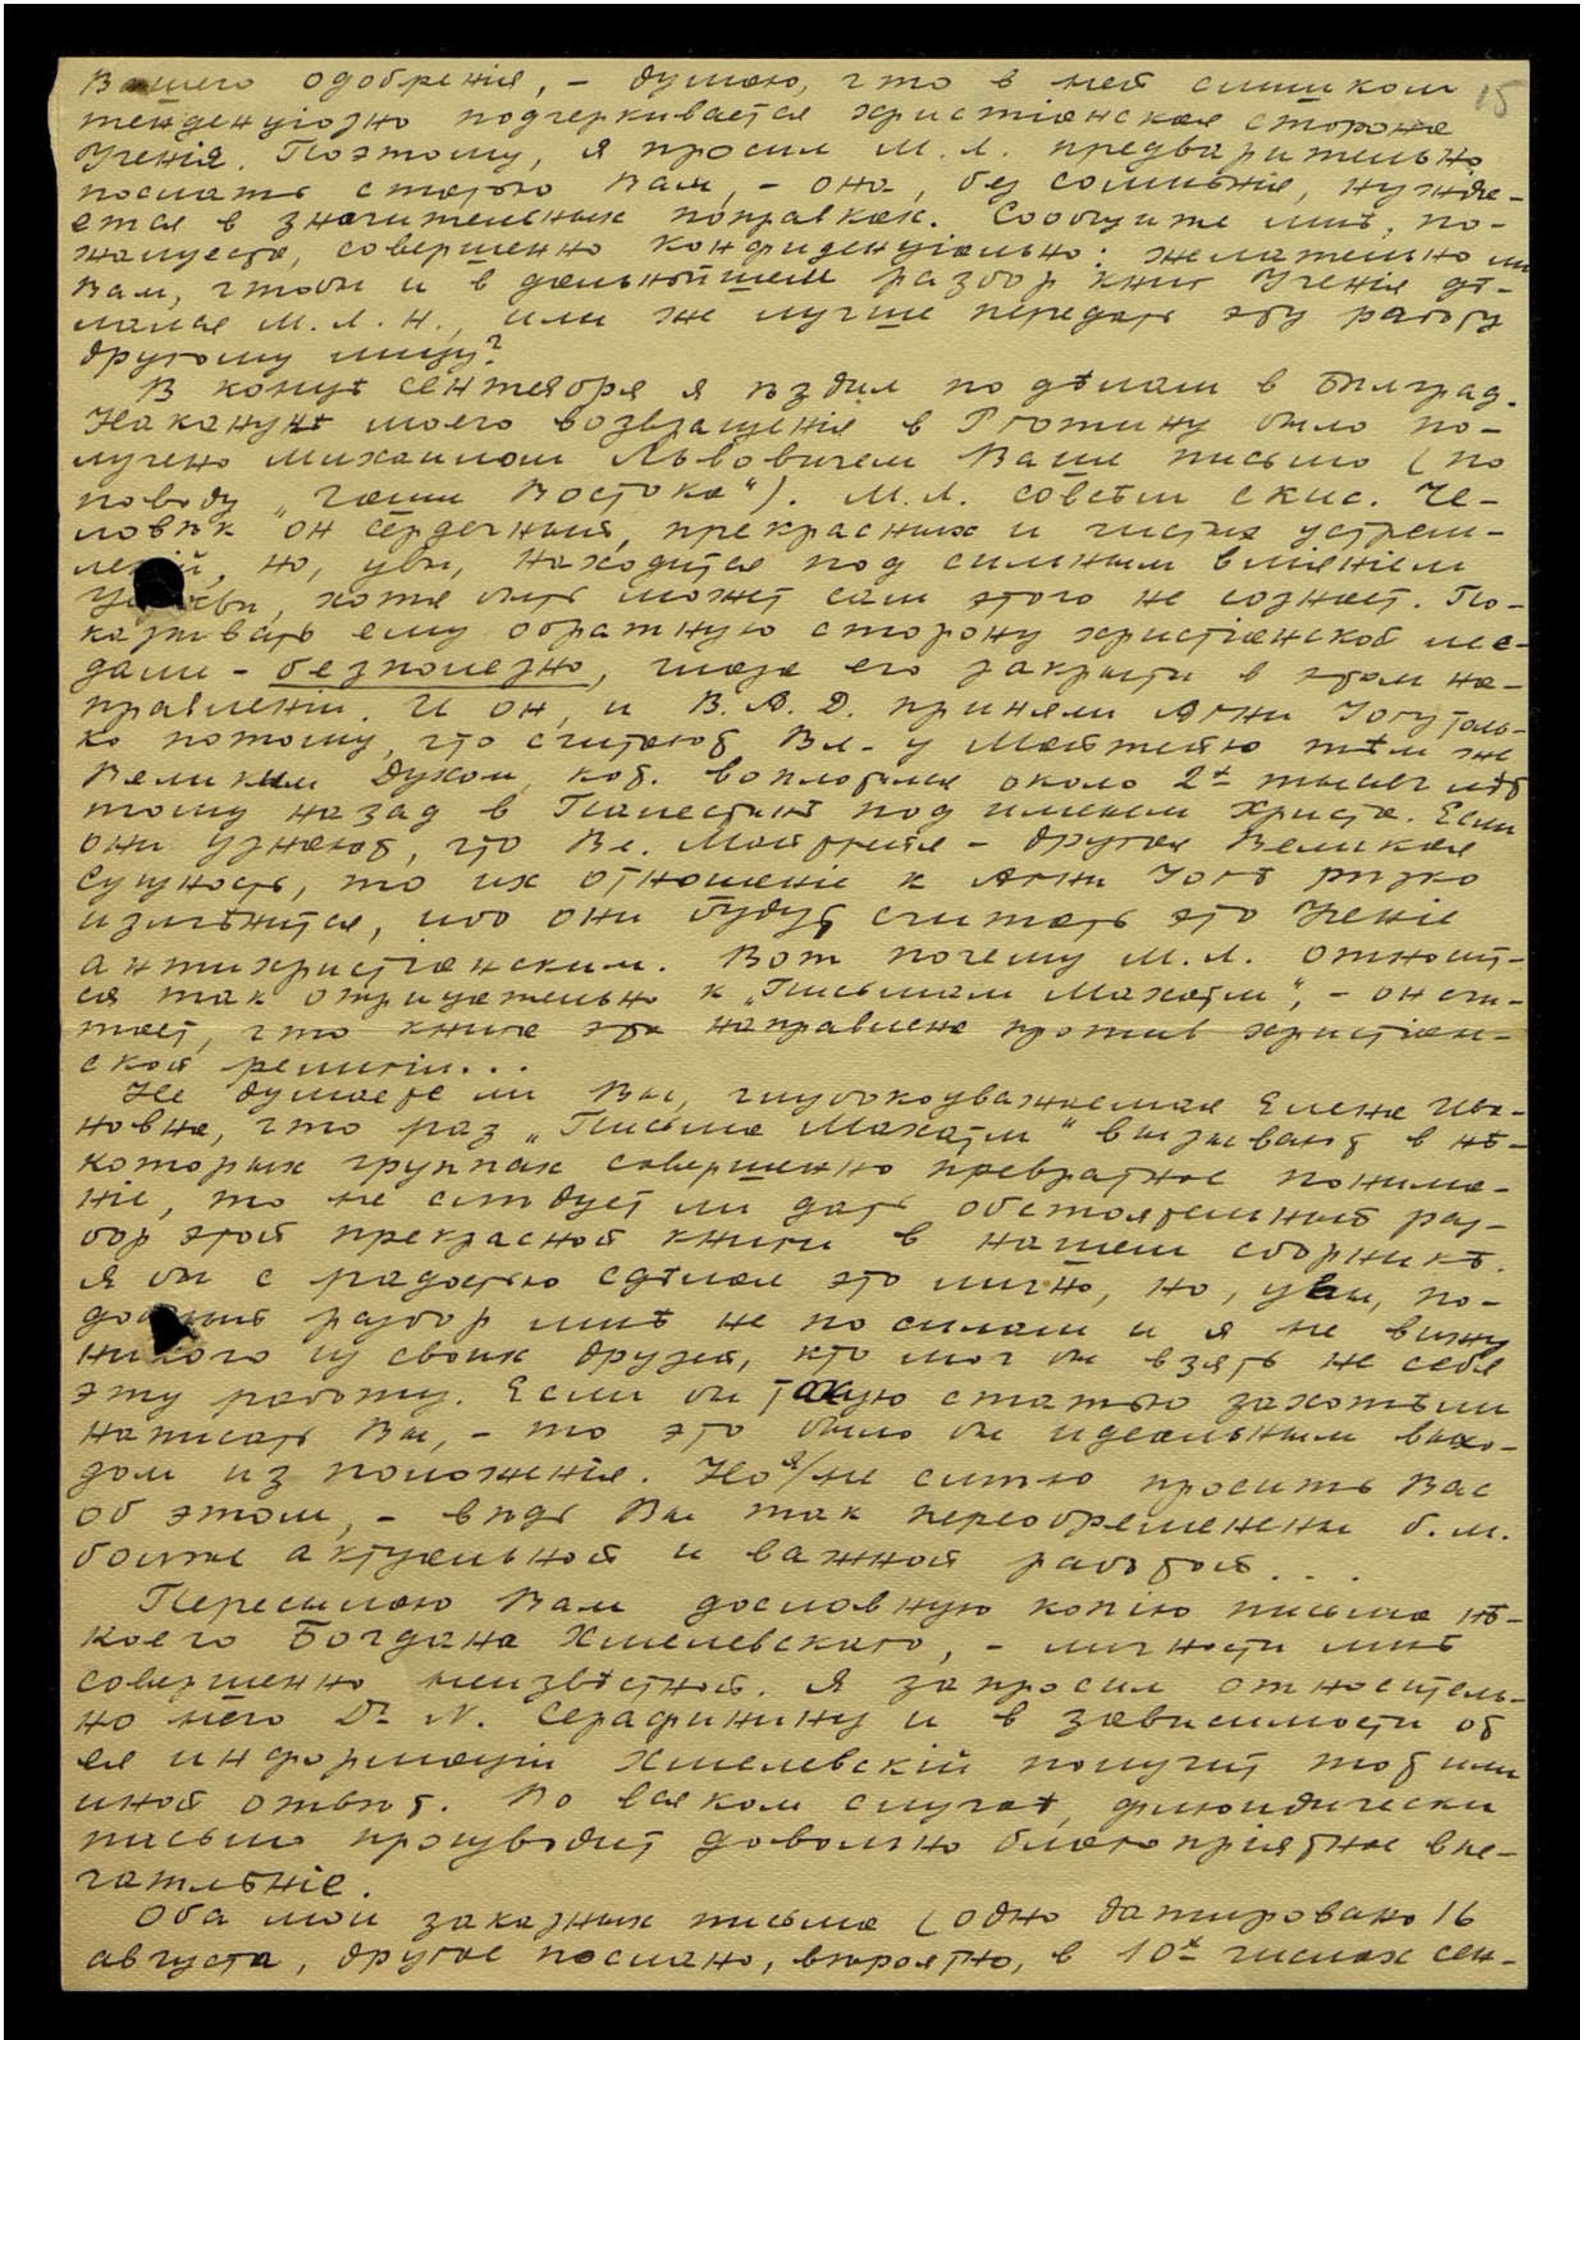 Вашего одобренія, - думаю, что в ней слишком 15
тенденціозно подчеркивается христіанская сторона
Ученія. Поэтому, я просил М.Л. предварительно
послать статью Вам, - она, без сомнѣнія, нуждае-
ется в значительных поправках. Сообщите мнѣ, по-
жалуйста, совершенно конфиденціально: желательно ли
Вам, чтобы и в дальнѣйшем разбор книг Ученія дѣ-
лался М.Л.Н., или же лучше передать эту работу
другому лицу?
В концѣ сентября я ѣздил по дѣлам в Бѣлград.
Наканунѣ моего возвращенія в Рготину было по-
лучено Михаилом Львовичем Ваше письмо (по
поводу „Чаши Востока"). М.Л. совсѣм скис. Че-
ловѣк он сердечный, прекрасных и чистых устрем-
леній, но, увы, находится под сильным вліяніем
хотя быть может сам этого не сознает. По-
казывать ему обратную сторону христіанской ме-
дали - безполезно, глаза его закрыты в этом на-
правленіи. И он, и В.А.Д. приняли Агни Іогу толь-
ко потому, что считают Вл-у Майтрейю тѣм же
Великим Духом, кот. воплотился около 2х тысяч лѣт
тому назад в Палестинѣ под именем Христа. Если
они узнают, что Вл. Майтрейя - другая Великая
Сущность, то их отношеніе к Агни Іогѣ рѣзко
измѣнится, ибо они будут считать это Ученіе
антихристіанским. Вот почему М.Л. относит-
ся так отрицательно к „Письмам Махатм", - он счи-
тает, что книга эта направлена против христіан-
ской религіи...
Не думаете ли Вы, глубокоуважаемая Елена Ива-
новна, что раз „Письма Махатм" вызывают в нѣ-
которых группах совершенно превратное понима-
ніе, то не слѣдует ли дать обстоятельный раз-
бор этой прекрасной книги в нашем сборникѣ.
Я бы с радостью сдѣлал это лично, но, увы, по-
добный разбор мнѣ не по силам и я не вижу
никого из своих друзей, кто мог бы взять на себя
эту работу. Если бы такую статью захотѣли
написать Вы, - то это было бы идеальным выхо-
дом из положенія. Но я не смѣю просить Вас
об этом, - вѣдь Вы так переобременены б.м.
болѣе актуальной и важной работой...
Пересылаю Вам дословную копію письма нѣ-
коего Богдана Хмелевскаго, - личности мнѣ
совершенно неизвѣстной. Я запросил относитель-
но него Dr N. Серафинину и в зависимости от
ея информаціи Хмелевскій получит тот или
иной отвѣт. Во всяком случаѣ, флюидически
письмо производит довольно благопріятное впе-
чатлѣніе.
Оба мои заказных письма (одно датировано 16
августа, другое послано, вѣроятно, в 10х числах сен-